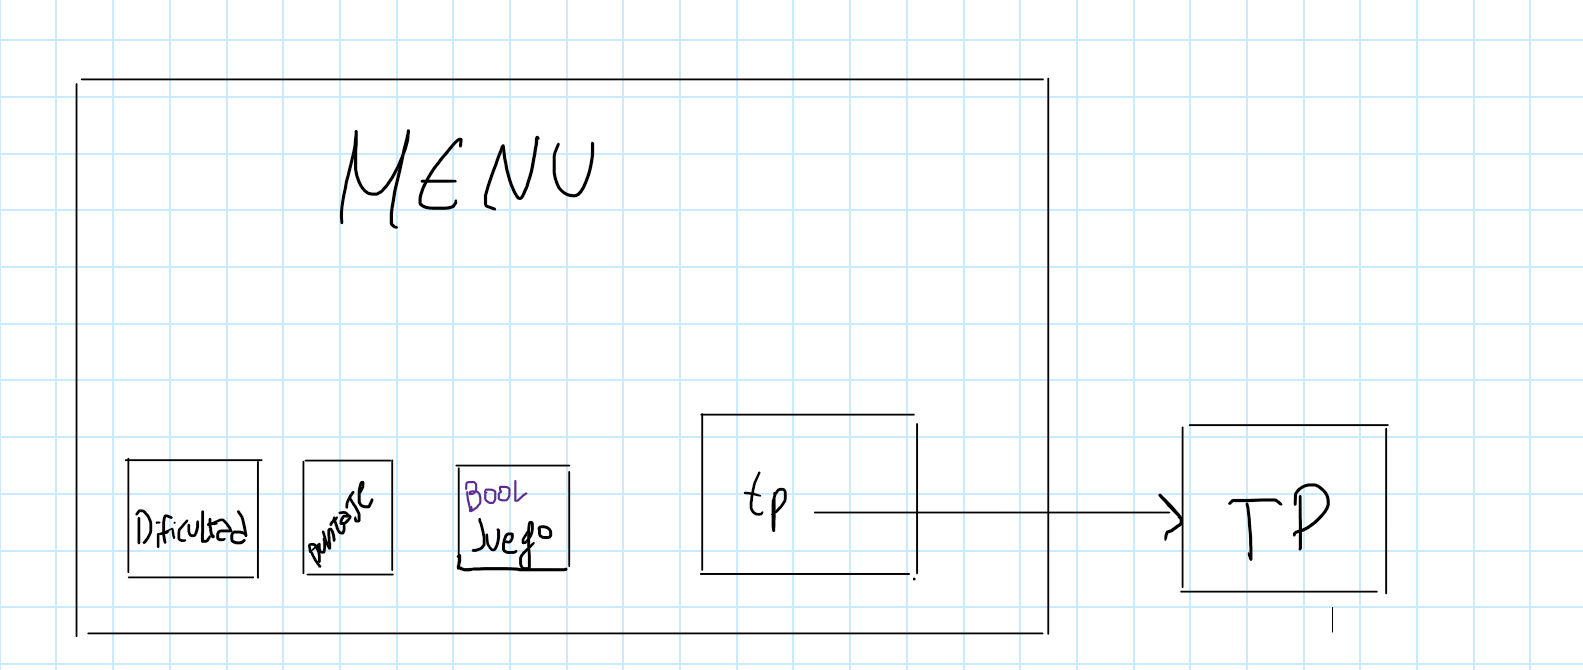 MENU
Dificultad
puntaje
Bool
Juego
tp
TP